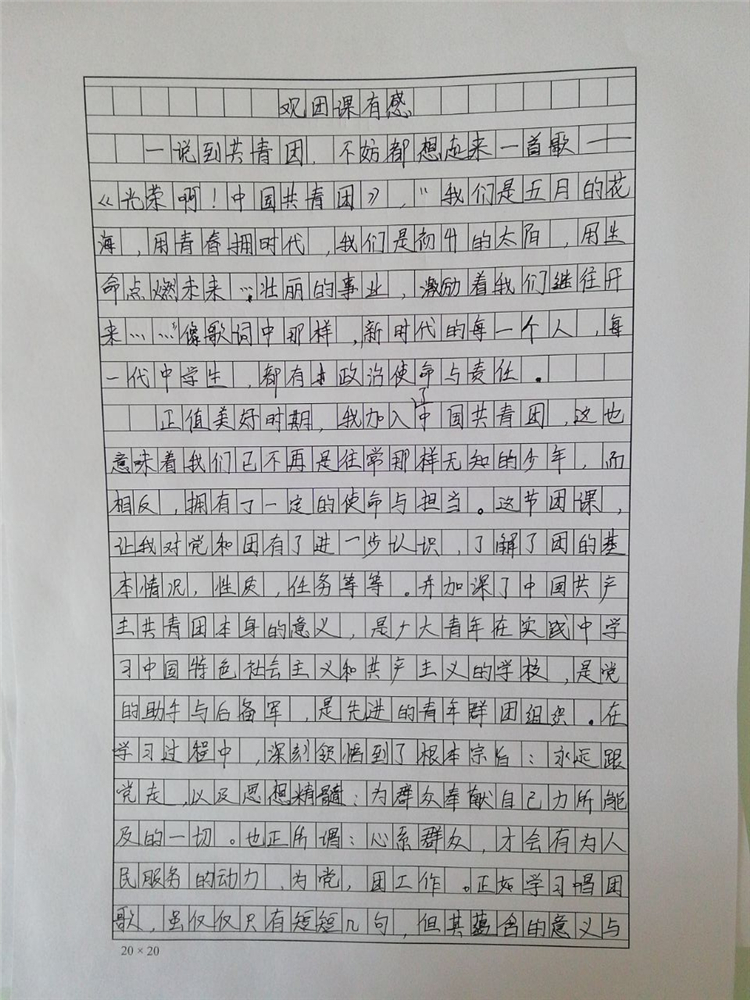 观团课有感
一说到共青团，不妨都想起来一首歌——
《光荣啊！中国共青团》，“我们是五月的花
海，用青春拥时代，我们是初升的太阳，用生
命点燃未来…壮丽的事业，激励着我们继往开
来……”像歌词中那样，新时代的每一个人，每
一代中学生，都有政治使命与责任。
正值美好时期，我加入了中国共青团，这也
意味着我们已不再是往常那样无知的少年，而
相反，拥有了一定的使命与担当。这节团课，
让我对党和团有了进一步认识，了解了团的基
本情况，性质，任务等等。并加深了中国共产
主共青团本身的意义，是广大青年在实践中学
习中国特色社会主义和共产主义的学校，是党
的助手与后备军，是先进的青年群团组织。在
学习过程中，深刻领悟到了根本宗旨：永远跟
党走，以及思想精髓：为群众奉献自己力所能
及的一切。也正所谓：心系群众，才会有为人
民服务的动力，为党，团工作。正如学习唱团
歌，虽仅仅只有短短几句，但其蕴含的意义与
20×20